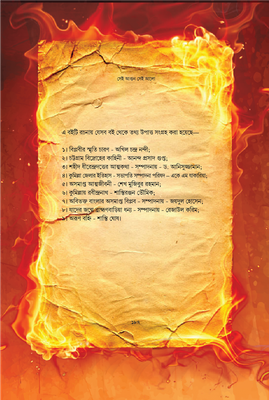 সেই আগুন সেই আলো
এ বইটি রচনায় যেসব বই থেকে তথ্য উপাত্ত সংগ্রহ করা হয়েছে—
১। বিপ্লবীর স্মৃতি চারণ - অখিল চন্দ্র নন্দী;
২। চট্টগ্রাম বিদ্রোহের কাহিনী - আনন্দ প্রসাদ গুপ্ত;
৩। শহীদ ধীরেন্দ্রনাথের আত্মকথা - সম্পাদনায় - ড. আনিসুজ্জামান;
৪। কুমিল্লা জেলার ইতিহাস - সভাপতি সম্পাদনা পরিষদ - একে এম যাকারিয়া;
৫। অসমাপ্ত আত্মজীবনী - শেখ মুজিবুর রহমান;
৬। কুমিল্লায় রবীন্দ্রনাথ - শান্তিরঞ্জন ভৌমিক;
৭। অবিভক্ত বাংলার অসমাপ্ত বিপ্লব - সম্পাদনায় - জয়দুল হোসেন;
৮। যাদের জন্যে ব্রাহ্মণবাড়িয়া ধন্য - সম্পাদনায় - রেজাউল করিম;
৯। অরুণ বহ্নি - শান্তি ঘোষ।